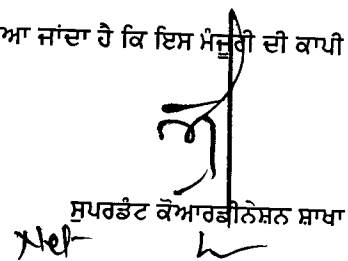 ਆ ਜਾਂਦਾ ਹੈ ਕਿ ਇਸ ਮੰਜੂਰੀ ਦੀ ਕਾਪੀ
ਸੁਪਰਡੰਟ ਕੋਆਰਡੀਨੇਸ਼ਨ ਸ਼ਾਖਾ